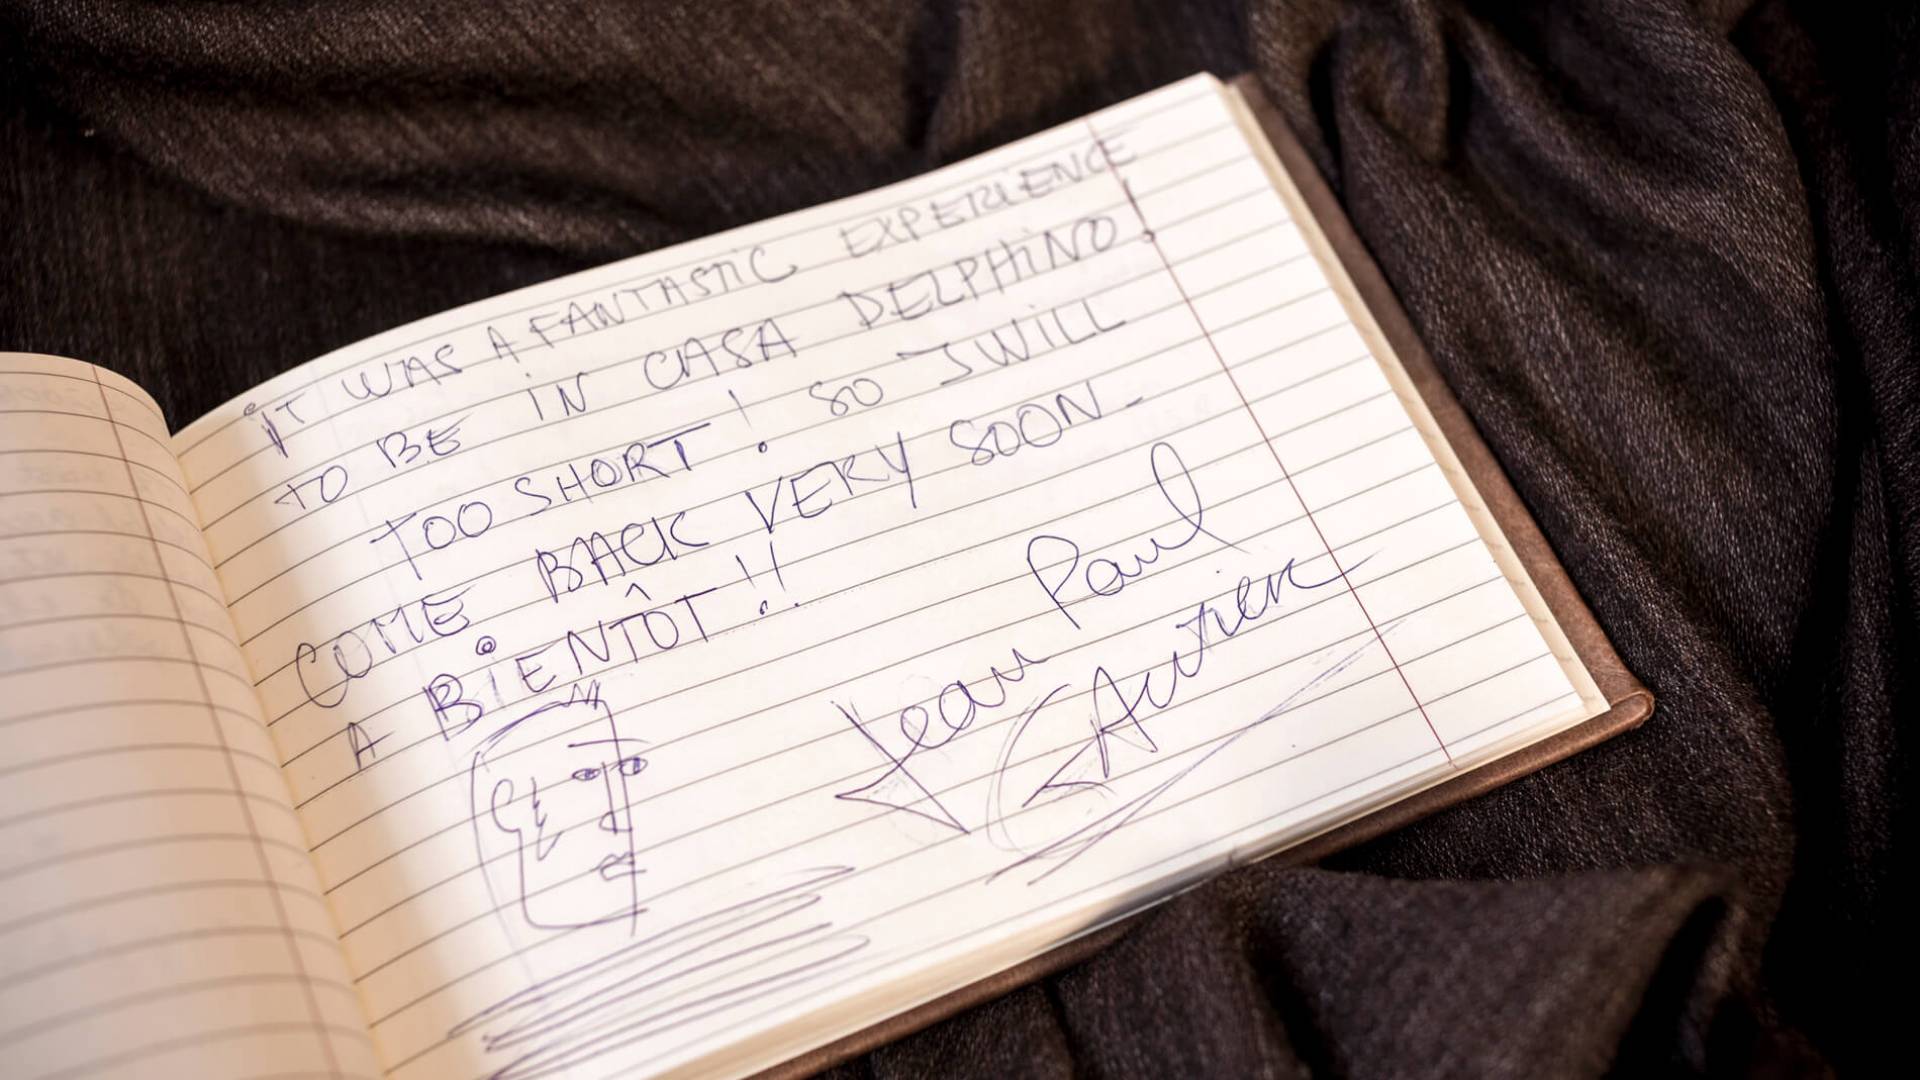 iT WAS A FANTASTIC EXPERIENCE
TO BE IN CASA DELPHINO !
TOO SHORT ! SO I WILL
COME BACK VERY SOON -
A BIENTÔT !!
Jean Paul